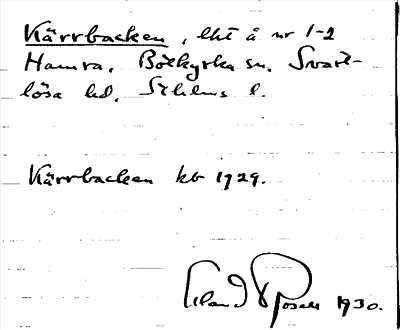 Kärrbacken, lht å nr 1-2
Hamra. Botkyrka sn. Svart-
lösa hd. Sthlms l.
Kärrbacken kb 1929.
1930.